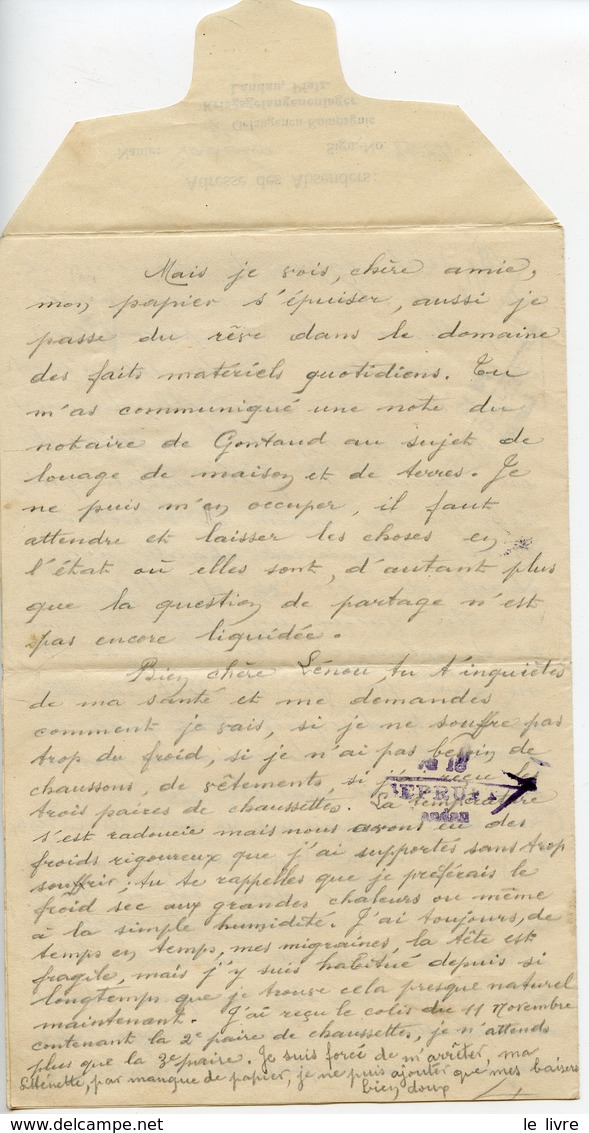 Landau, Pfalz.
Kriegsgefangenenlager
Gefangenen-Kompagnie
Name: Sign.-No.
Adresse des Absenders:
Mais je vois, chère amie,
mon papier s'épuiser, aussi je
passe du rêve dans le domaine
des faits matériels quotidiens. Tu
m'as communiqué une note du
notaire de Gontaud au sujet de
louage de maison et de terres. Je
ne puis m'en occuper, il faut
attendre et laisser les choses en
l'état où elles sont, d'autant plus
que la question de partage n'est
pas encore liquidée.
Bien chère Lénou, tu t'inquiètes
de ma santé et me demandes
comment je vais, si je ne souffre pas
trop du froid, si je n'ai pas besoin de
chaussons, de vêtements, si j'ai reçu les
trois paires de chaussettes. La température
s'est radoucie mais nous avons eu des
froids rigoureux que j'ai supportés sans trop
souffrir ; tu te rappelles que je préférais le
froid sec aux grandes chaleurs ou même
à la simple humidité. J'ai toujours, de
temps en temps, mes migraines, la tête est
fragile, mais j'y suis habitué depuis si
longtemps que je trouve cela presque naturel
maintenant. J'ai reçu le colis du 11 Novembre
contenant la 2e paire de chaussettes, je n'attends
plus que la 3e paire. Je suis forcé de m'arrêter, ma
Lénette, par manque de papier, je ne puis ajouter que mes baisers
bien doux
18
EPRUF
andau
le livre